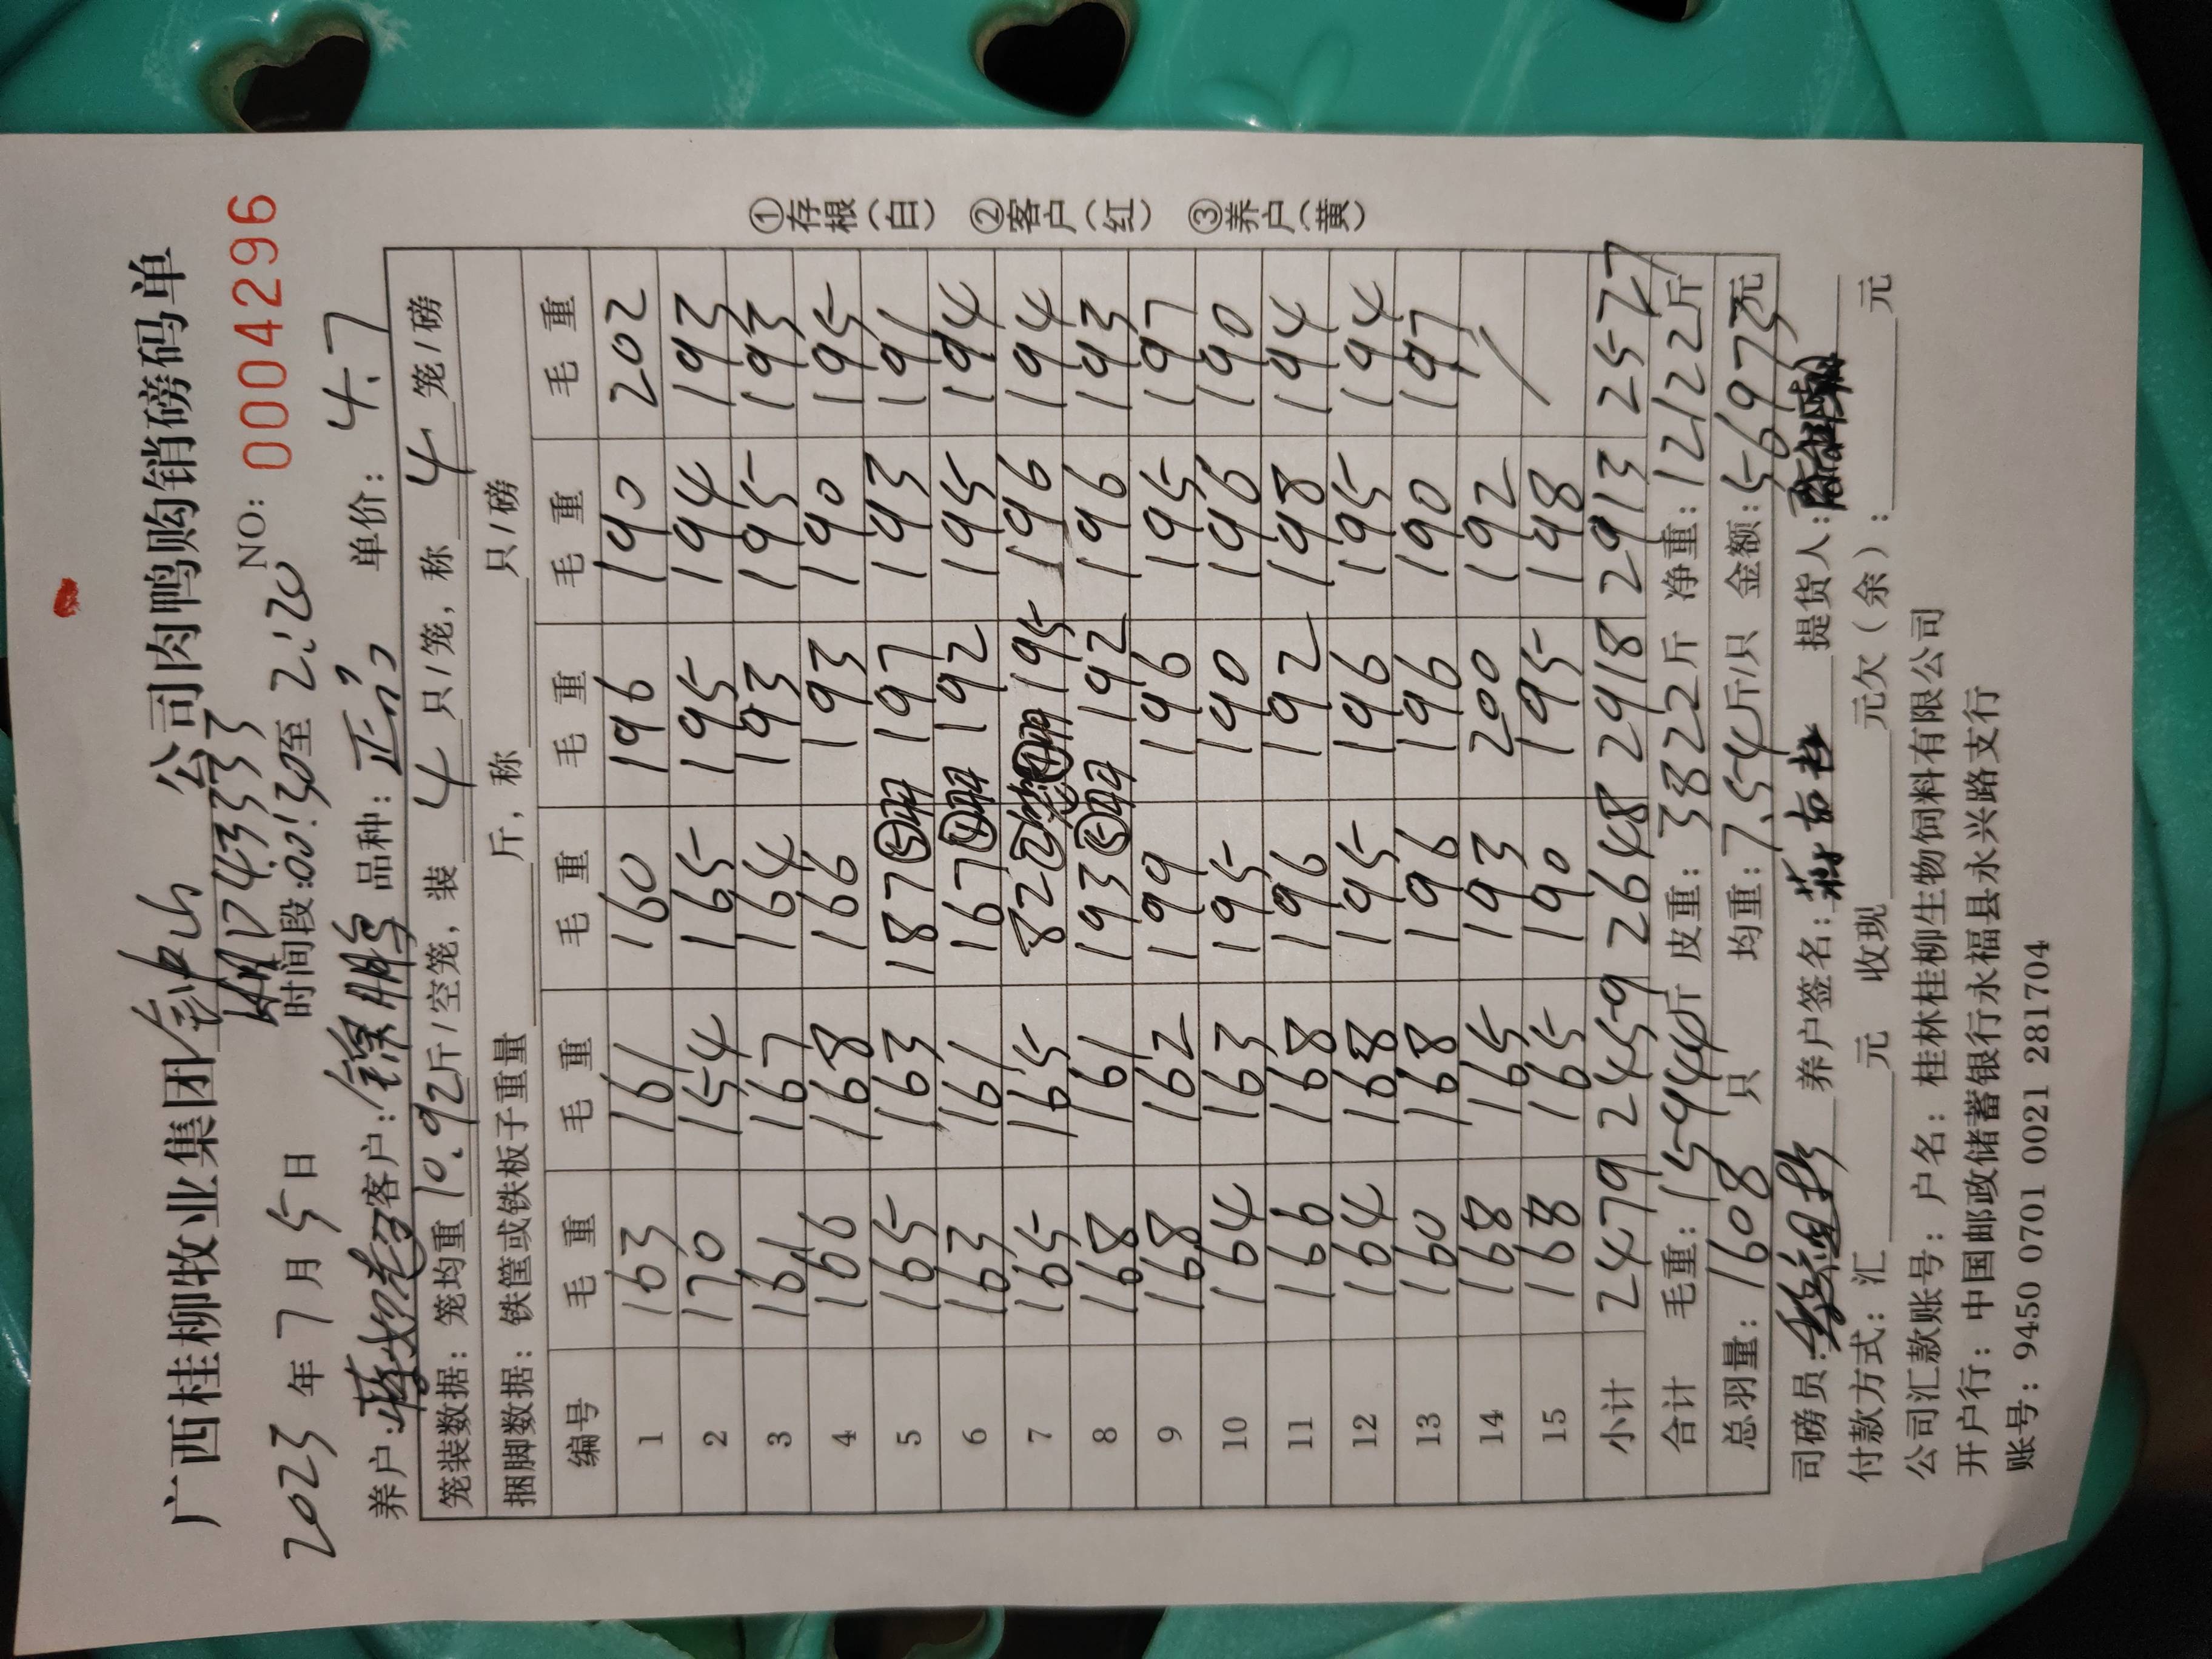 广西桂柳牧业集团钟山公司肉鸭购销磅码单
2023年7月5日 NO: 0004296
D74333 时间段:00:30至2:20
养户: 客户:锦鹏 品种: 单价: 4.7
笼装数据: 笼均重 10.92 斤/空笼, 装 4 只/笼, 称 4 笼/磅
捆脚数据: 铁筐或铁板子重量 斤, 称 只/磅
编号 毛重 毛重 毛重 毛重 毛重 毛重
1 163 161 160 196 190 202
2 170 154 165 195 194 193
3 161 167 164 193 195 193
4 166 168 166 193 190 195
5 165 163 187⑤ 197 193 191
6 163 161 167④ 192 195 194
7 165 165 82② 195 196 194
8 168 161 193⑤ 192 196 193
9 168 162 199 196 195 197
10 164 163 195 190 196 190
11 166 168 196 192 198 194
12 164 168 195 196 195 194
13 160 168 196 196 190 197
14 168 165 193 200 192 /
15 168 165 190 195 198
小计 2479 2459 2648 2918 2913 2527
合计 毛重: 15944斤 皮重: 3822斤 净重: 12122斤
总羽量: 1608 只 均重: 7.54斤/只 金额: 56973元
司磅员: 养户签名: 提货人:
付款方式: 汇 元 收现 元欠(余): 元
公司汇款账号: 户名: 桂林桂柳生物饲料有限公司
开户行: 中国邮政储蓄银行永福县永兴路支行
账号: 9450 0701 0021 281704
①存根(白) ②客户(红) ③养户(黄)